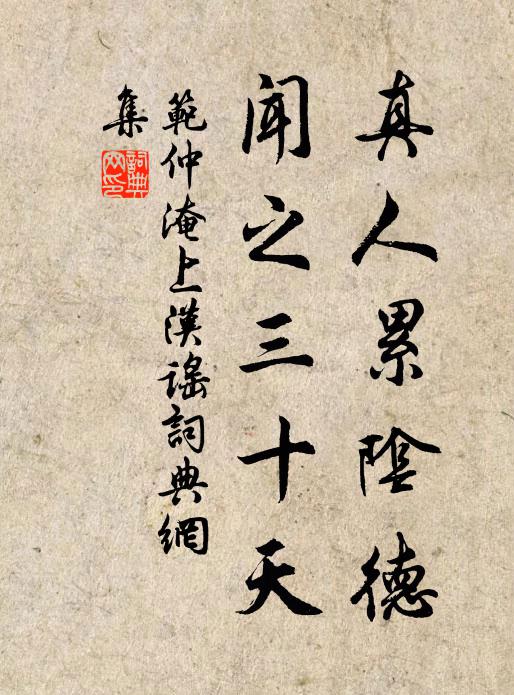 真人累陰德
聞之三十天
範仲淹上漢謠詞典網
集
詞典網印